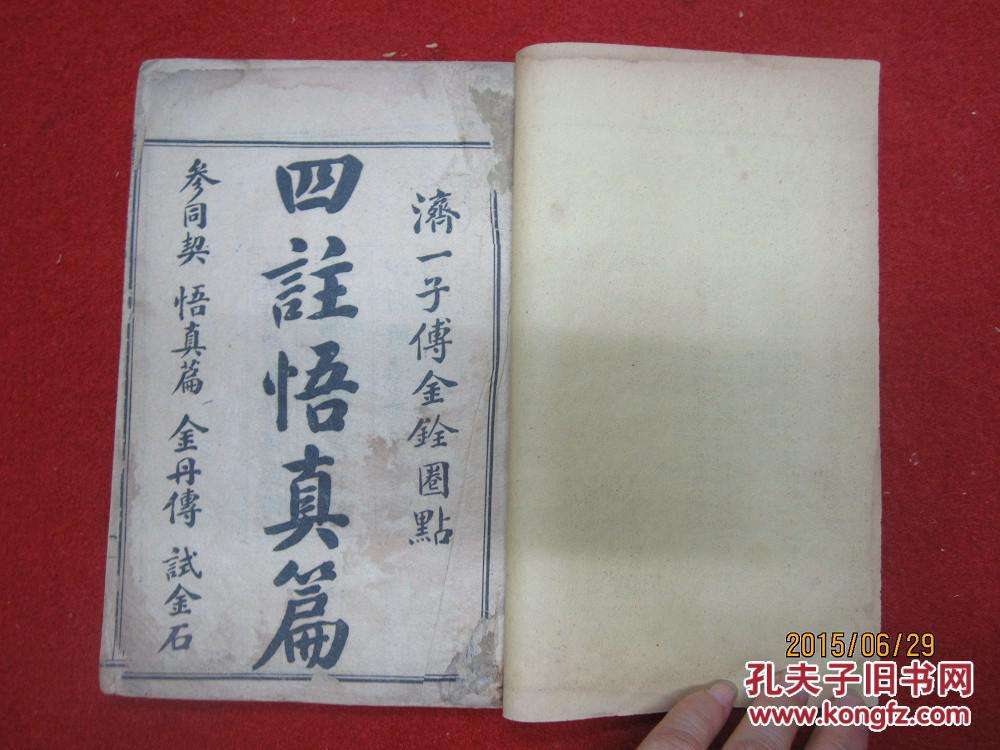 濟一子傅金銓圈點
四註悟真篇
参同契 悟真篇 金丹傳 試金石
2015/06/29
孔夫子旧书网
www.kongfz.com